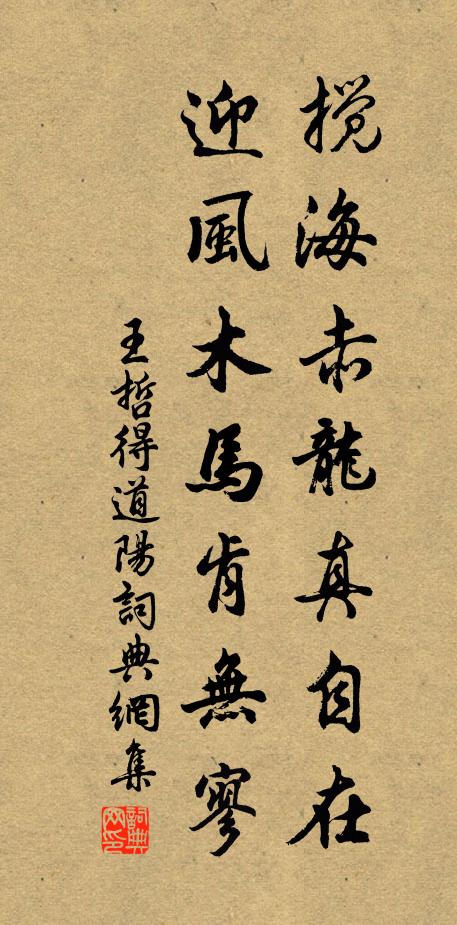 搅海赤龍真自在
迎風木馬肯無寥
王哲得道陽詞典網集
詞典网印